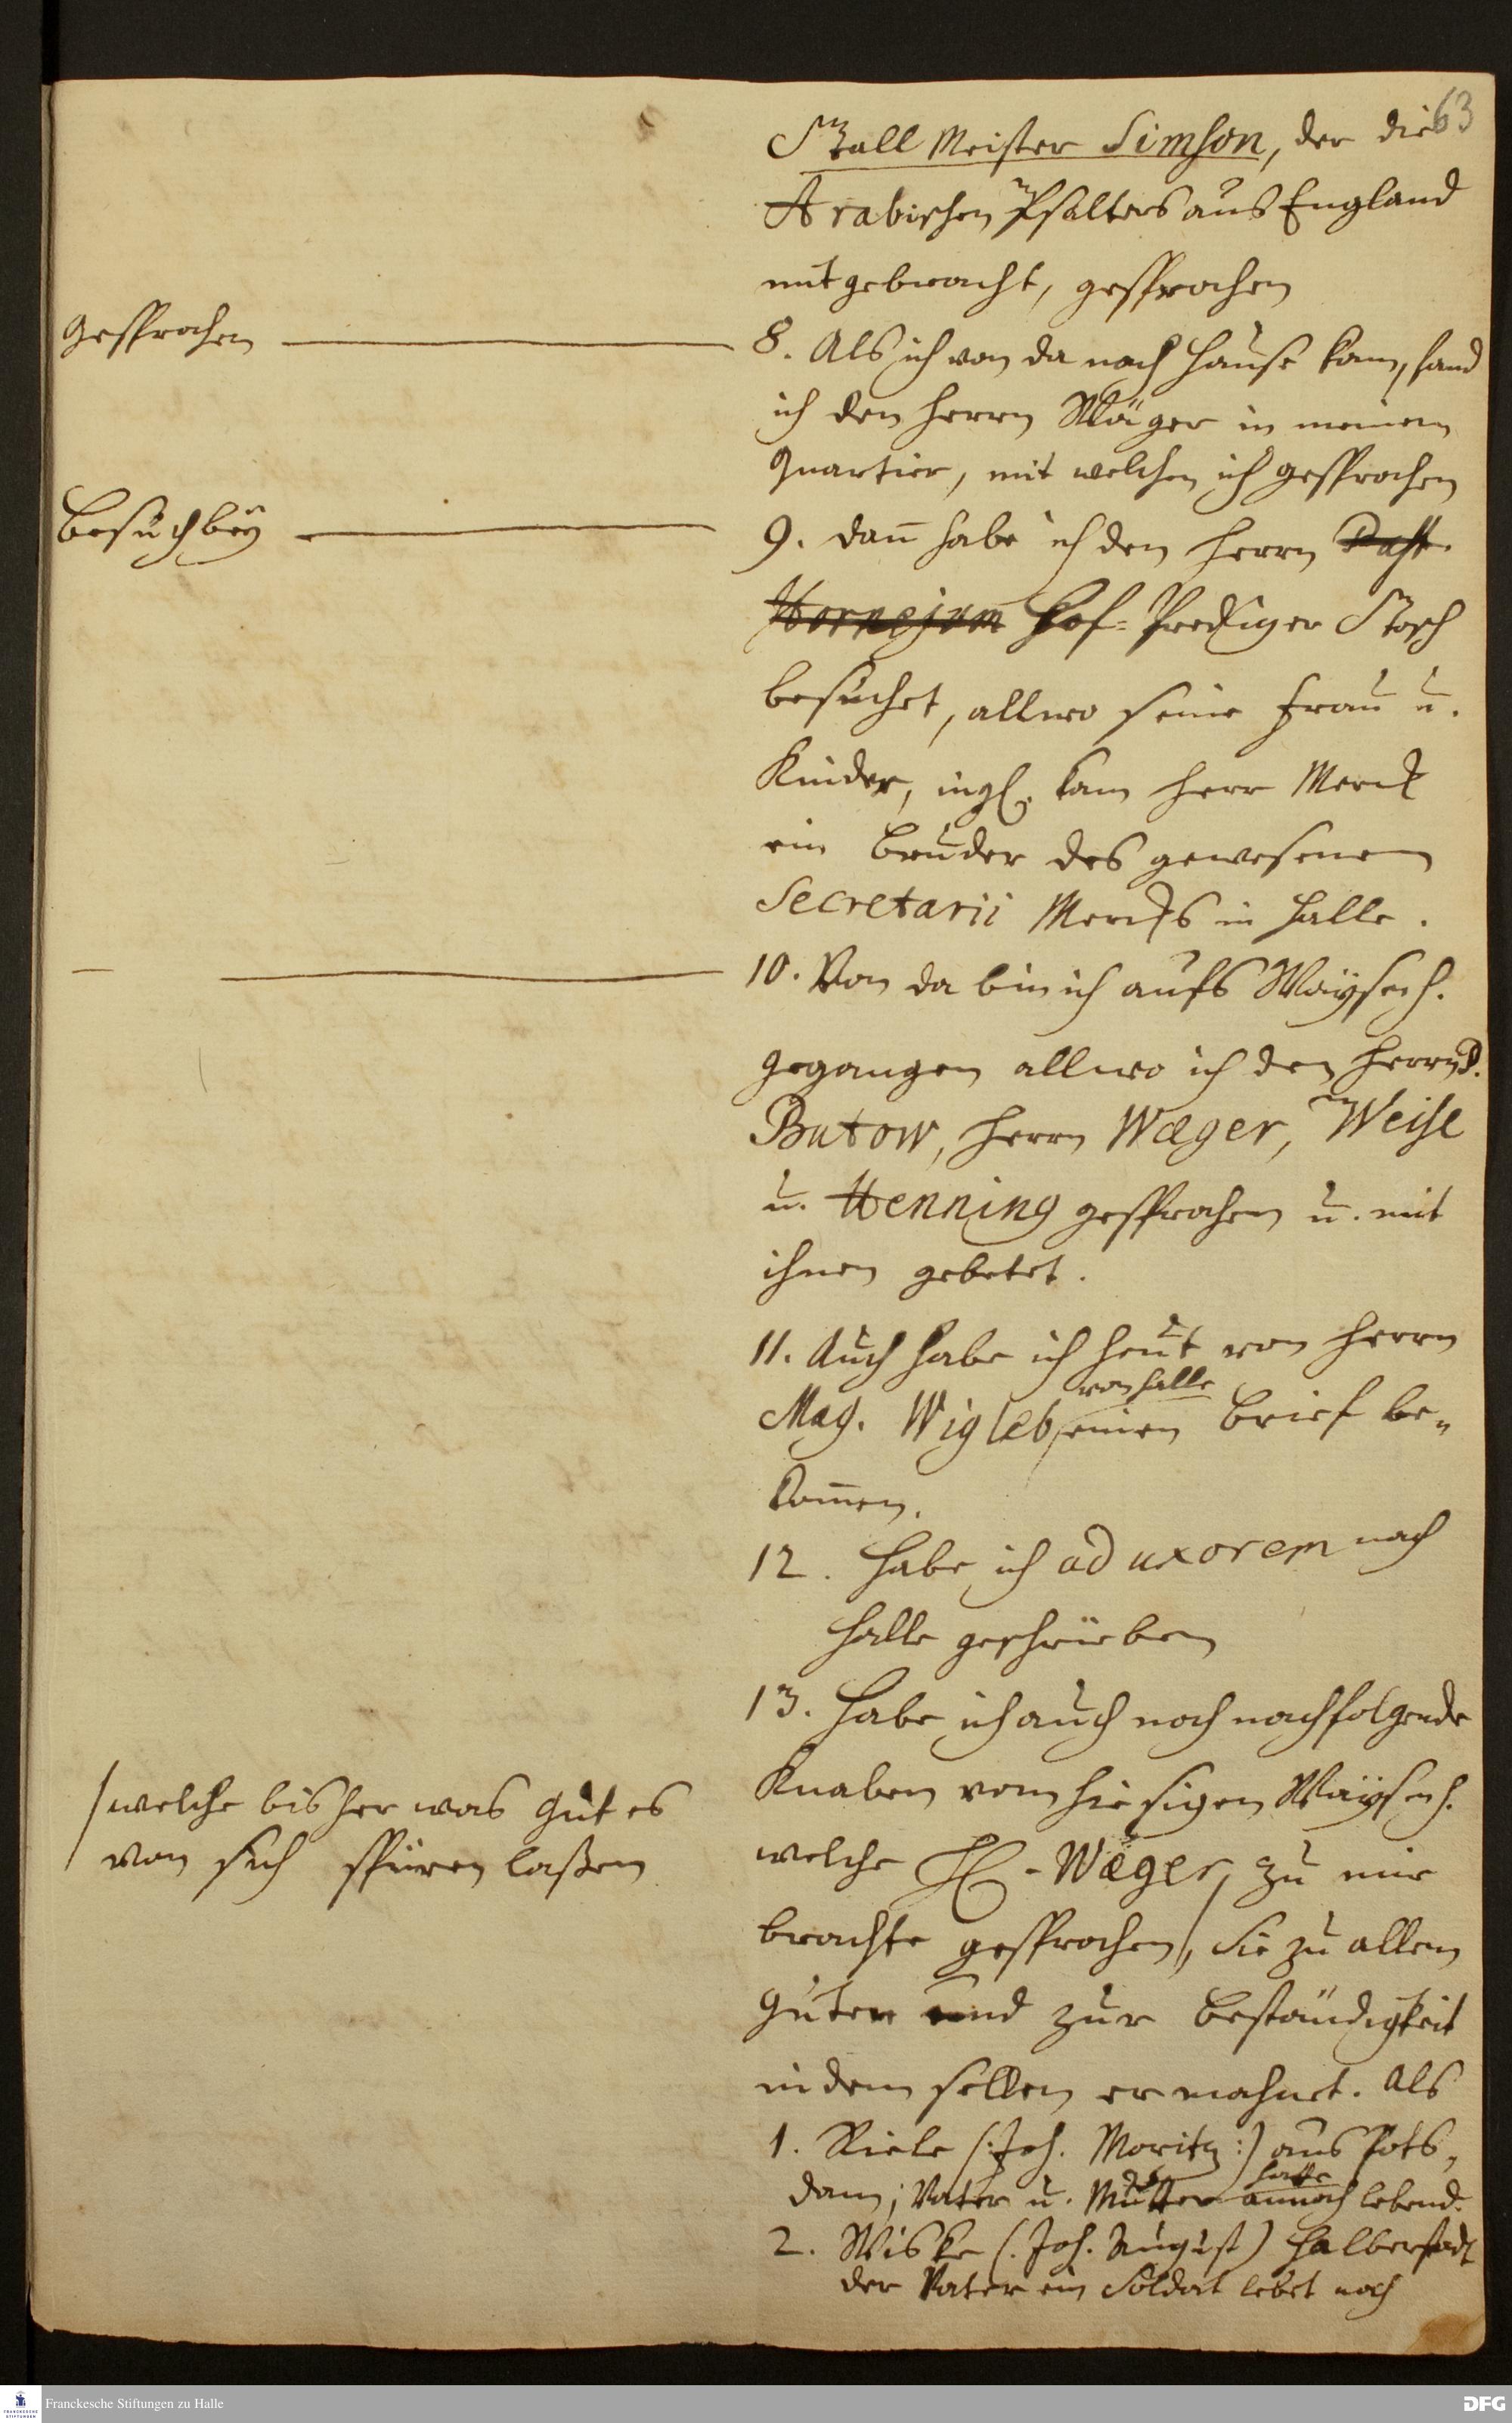 63
Stall Meister Simson, der die
Arabischen Psalters aus England
mitgebracht, gesprochen
Gesprochen
8. Als ich von da nach Hause kam, fand
ich den Herrn Wäger in meinem
Quartier, mit welchen ich gesprochen
Besuch bey
9. dañ habe ich den Herrn Past.
Hornejum Hof-Prediger Stosch
besuchet, allwo seine Frau u.
Kinder, ingl. kam Herr Merck
ein Bruder des gewesenen
Secretarii Mercks in Halle.
10. Von da bin ich aufs Waÿsenh.
gegangen allwo ich den Herrn P.
Butow, Herrn Wæger, Weise
u. Henning gesprochen u. mit
ihnen gebetet.
11. Auch habe ich heut von Herrn
von Halle
Mag. Wigleb, einen Brief be-
kom̄en.
12. Habe ich ad uxorem nach
Halle geschrieben
13. Habe ich auch noch nachfolgende
Knaben vom hiesigen Waÿsenh.
welche H. Wæger, zu mir
brachte gesprochen, sie zu allem
Guten und zur Beständigkeit
in demselben ermahnet. Als
welche bisher was Gutes
von sich spüren laßen
1. Riele (: Joh. Moritz :) aus Pots-
dam; Vater u. Mutter annoch lebend.
2. Wiske (. Joh. August) Halberstadt
der Vater ein Soldat lebet noch
Franckesche Stiftungen zu Halle
DFG